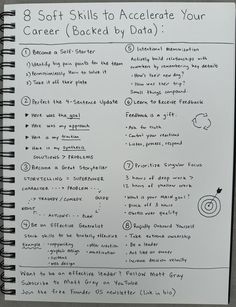 8 Soft Skills to Accelerate Your
Career (Backed by Data):
① Become a Self-Starter
1) Identify big pain points for the team
2) Permissionlessly learn to solve it
3) Take it off their plate
② Perfect the 4-Sentence Update
Here was the goal
Here was my approach
Here is my traction
Here is my synthesis
SOLUTIONS > PROBLEMS
③ Become a Great Storyteller
STORYTELLING = SUPERPOWER
CHARACTER → PROBLEM
→ TRAGEDY / COMEDY
GUIDE
→ ACTION
④ Be an Effective Generalist
Stack skills to be broadly effective
Example
- copywriting
- graphic design
- web design
⑤ Intentional Memorization
Actively build relationships with
coworkers by remembering key details
- How's their new dog?
- How was their trip?
Small things compound.
⑥ Learn to Receive Feedback
Feedback is a gift.
- Ask for truth
- Control your reactions
- Listen, process, respond
⑦ Prioritize Singular Focus
3 hours of deep work >
12 hours of shallow work
- What is your main goal?
- Block off 3 hours
- Quality over quantity
⑧ Rapidly Onboard Yourself
- Take extreme ownership
- Be a leader
- Act like an owner
- Increase decision velocity
Want to be an effective leader? Follow Matt Gray
Subscribe to Matt Gray on YouTube
Join the free Founder OS newsletter (link in bio)